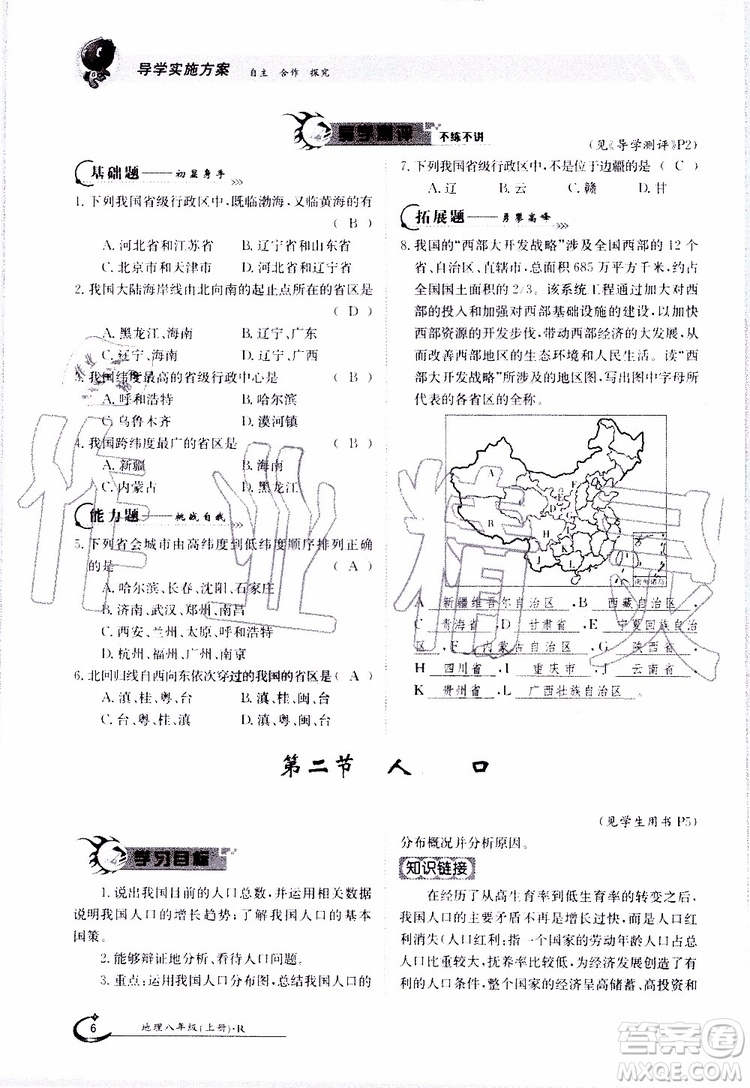 导学实施方案 自主 合作 探究
导学测评 不练不讲
(见《导学测评》P2)
基础题——初显身手
1. 下列我国省级行政区中,既临渤海,又临黄海的有
( B )
A. 河北省和江苏省 B. 辽宁省和山东省
C. 北京市和天津市 D. 辽宁省和河北省
2. 我国大陆海岸线由北向南的起止点所在的省区是
( D )
A. 黑龙江、海南 B. 辽宁、广东
C. 辽宁、海南 D. 辽宁、广西
3. 我国纬度最高的省级行政中心是 ( B )
A. 呼和浩特 B. 哈尔滨
C. 乌鲁木齐 D. 漠河镇
4. 我国跨纬度最广的省区是 ( B )
A. 新疆 B. 海南
C. 内蒙古 D. 黑龙江
能力题——挑战自我
5. 下列省会城市由高纬度到低纬度顺序排列正确
的是 ( A )
A. 哈尔滨、长春、沈阳、石家庄
B. 济南、武汉、郑州、南昌
C. 西安、兰州、太原、呼和浩特
D. 杭州、福州、广州、南宁
6. 北回归线自西向东依次穿过的我国的省区是( A )
A. 滇、桂、粤、台 B. 桂、滇、闽、台
C. 台、粤、桂、滇 D. 滇、桂、闽、台
7. 下列我国省级行政区中,不是位于边疆的是 ( C )
A. 辽 B. 云 C. 赣 D. 甘
拓展题——勇攀高峰
8. 我国的“西部大开发战略”涉及全国西部的 12 个
省、自治区、直辖市,面积 685 万平方千米,约占
全国国土面积的 2/3。该系统工程通过加大对西
部的投入和加强对西部基础设施的建设,以加快
西部资源的开发步伐,带动西部经济的大发展,从
而改善西部地区的生态环境和人民生活。读“西
部大开发战略”所涉及的地区图,写出图中字母所
代表的各省区的全称。
A 新疆维吾尔自治区,B 西藏自治区,
C 青海省,D 甘肃省,E 宁夏回族自治
区,F 内蒙古自治区,G 陕西省,
H 四川省,I 重庆市,J 云南省,
K 贵州省,L 广西壮族自治区。
第二节 人 口
(见学生用书 P5)
学习目标
1. 说出我国目前的人口总数,并能够运用相关数据
说明我国人口的增长趋势;了解我国人口的基本
国策。
2. 能够辩证地分析、看待人口问题。
3. 重点:运用我国人口分布图,总结我国人口的
分布概况并分析原因。
知识链接
在经历了从高生育率到低生育率的转变之后,
我国人口的主要矛盾不再是增长过快,而是人口红
利消失(人口红利:指一个国家的劳动年龄人口占总
人口比重较大,抚养率比较低,为经济发展创造了有
利的人口条件,整个国家的经济呈高储蓄、高投资和
6 地理八年级(上册)·R
作业精灵